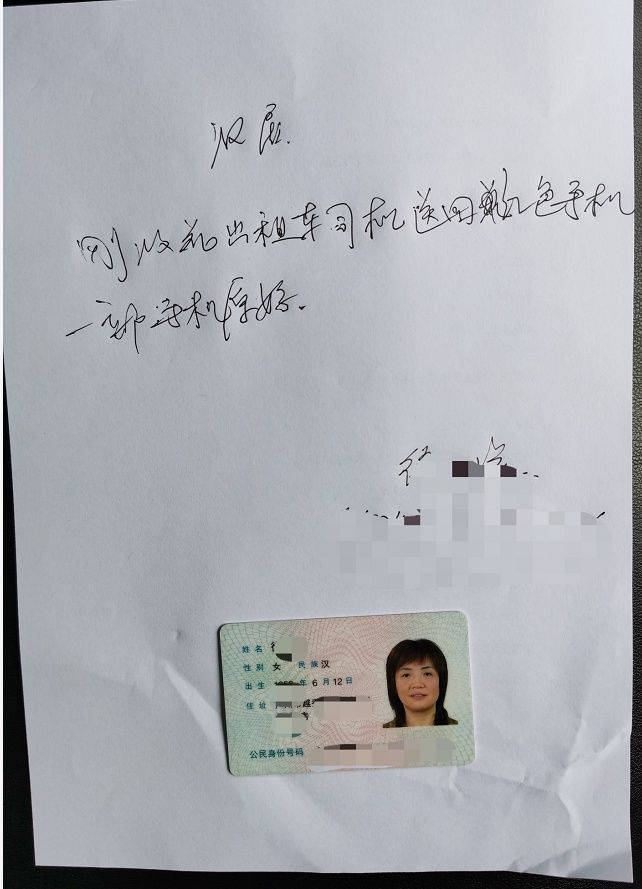 收居.
刚收到出租车司机送回 色手机
一部 手机完好.
徐
姓名 徐
性别 女 民族 汉
出生 年 6 月 12 日
住址
公民身份号码